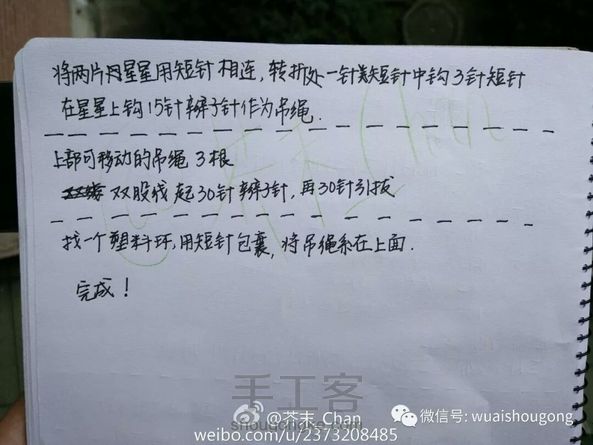 将两片星星用短针相连，转折处一针短针中钩3针短针
在星星上钩15针辫子针作为吊绳.
上部可移动的吊绳 3根
双股线 起30针辫子针，再30针引拔
找一个塑料环，用短针包裹，将吊绳系在上面.
完成！
手工客
shougongke.com
@芥末_Chan
微信号: wuaishougong
weibo.com/u/2373208485